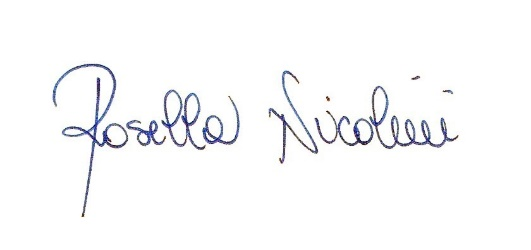 Rosella Nicolini